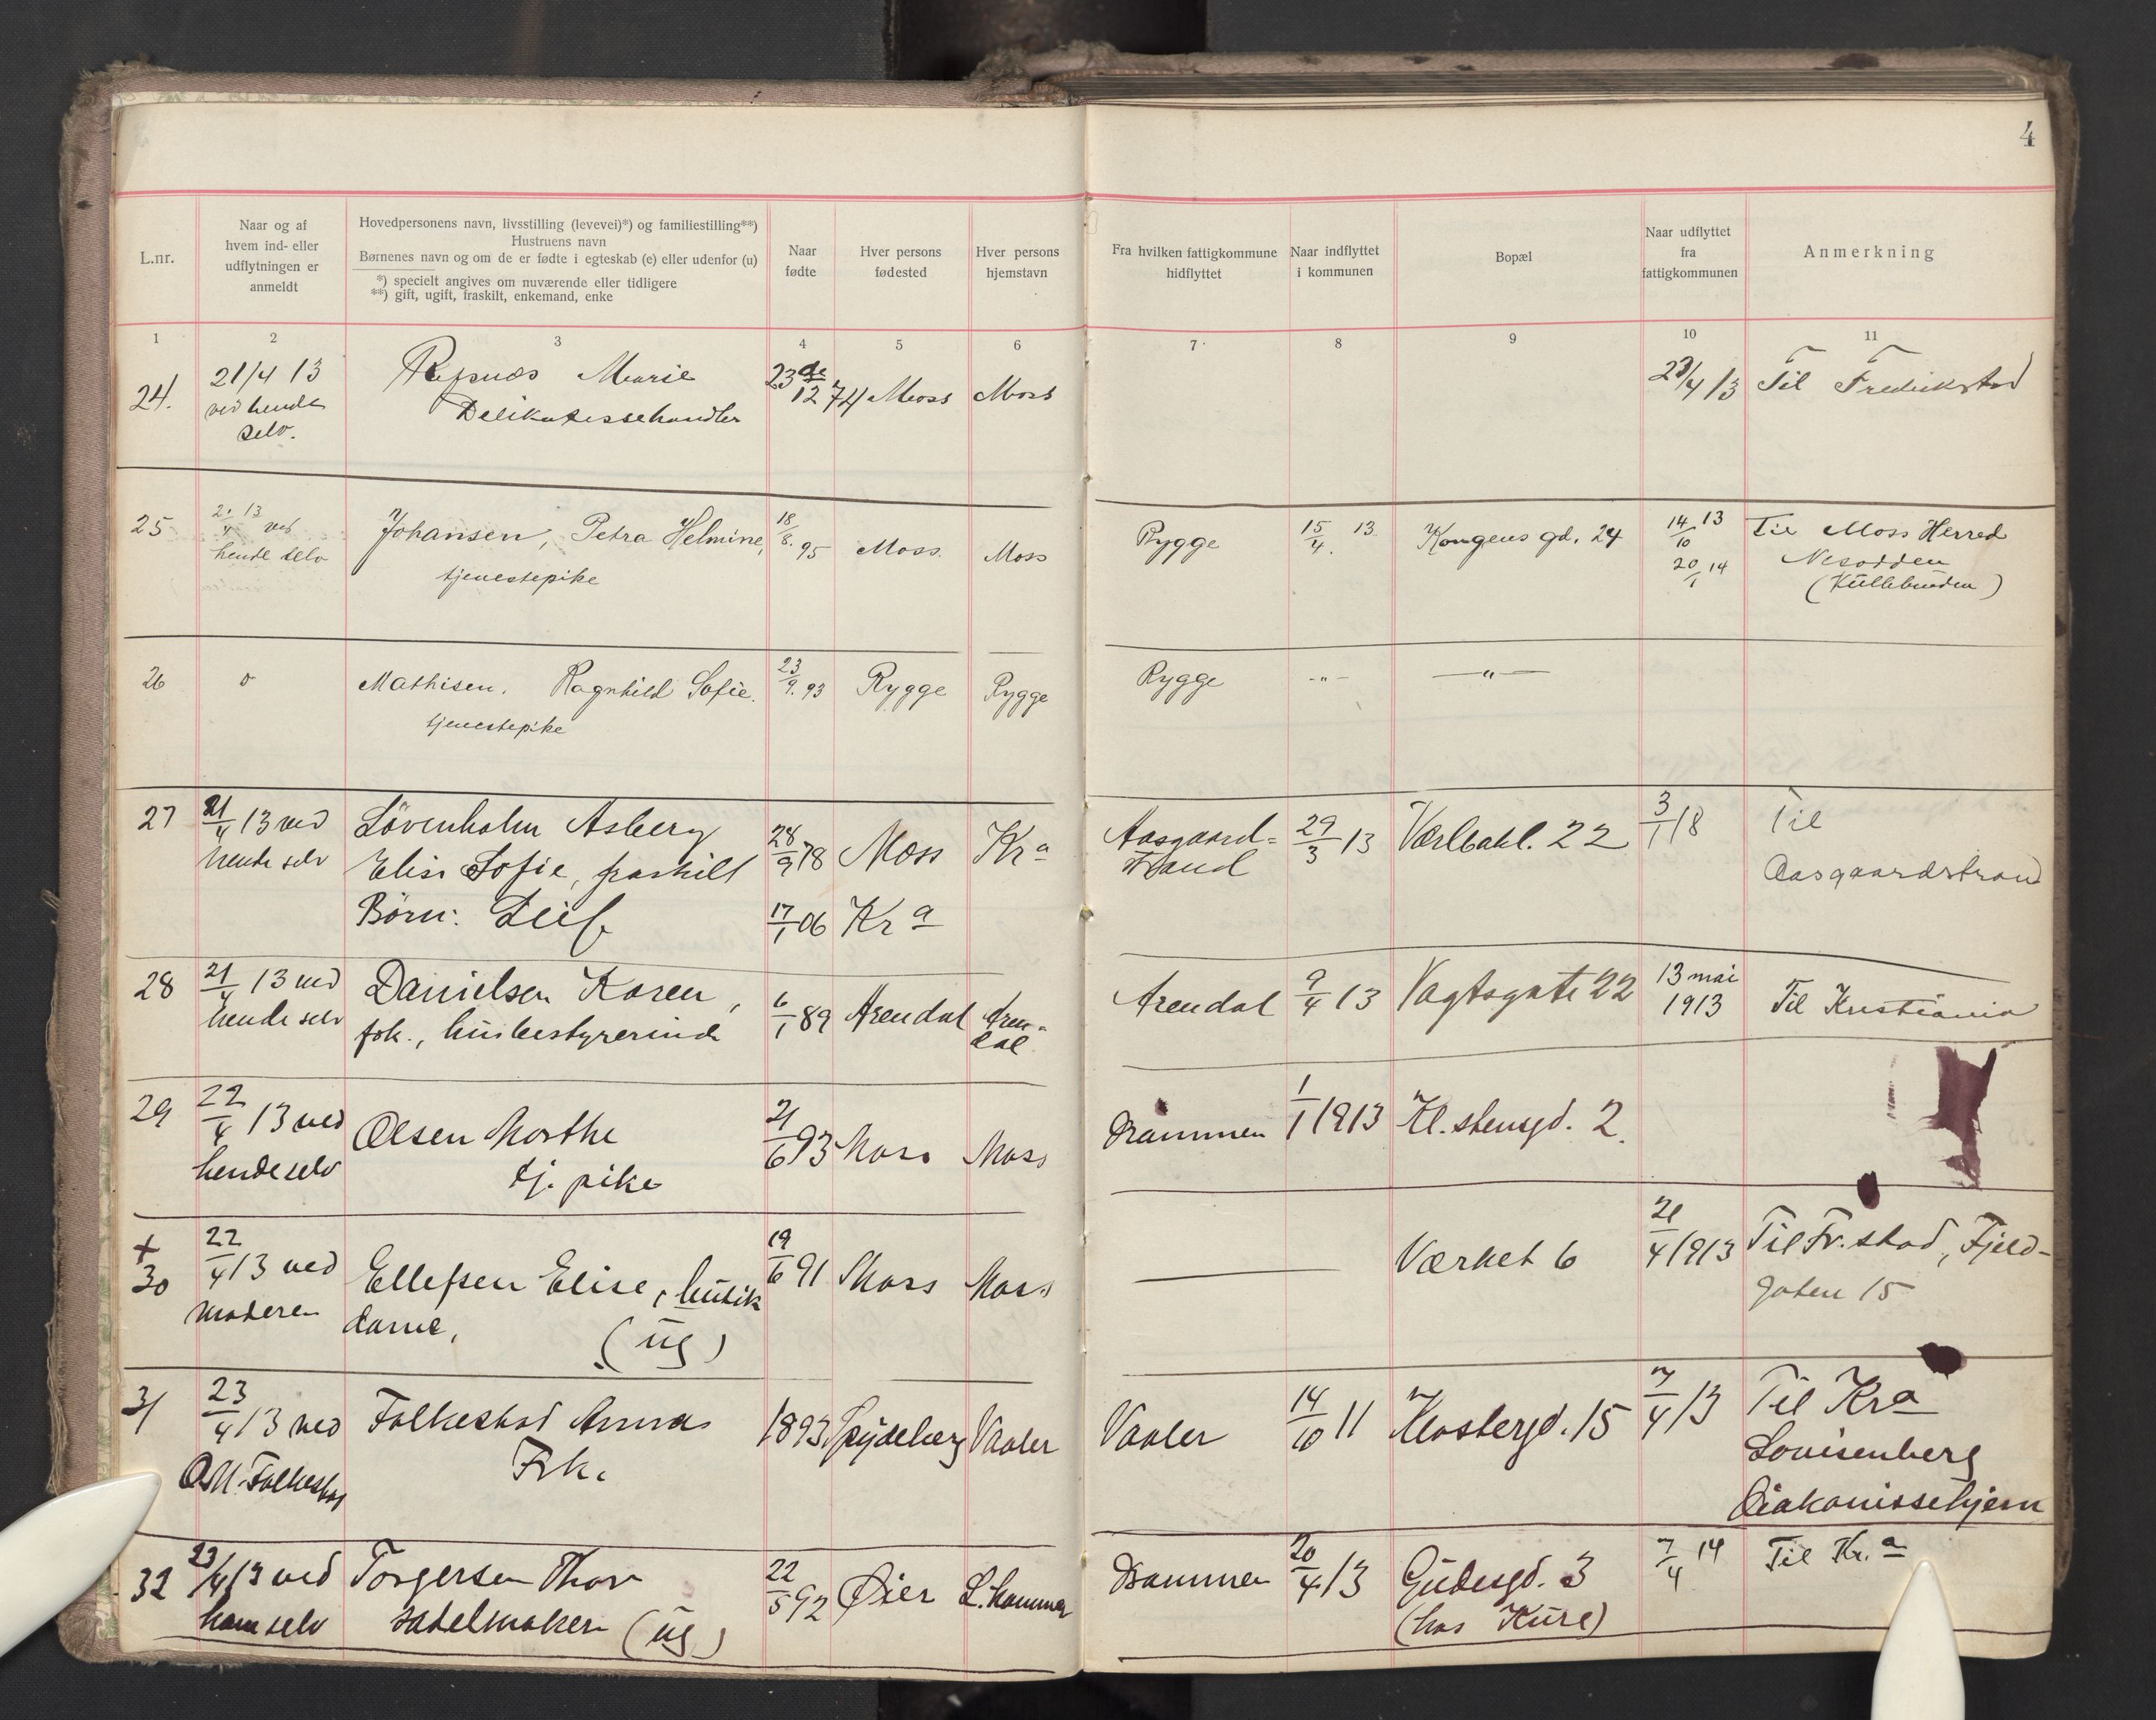 4
L.nr.
Naar og af
hvem ind- eller
udflytningen er
anmeldt
Hovedpersonens navn, livsstilling (levevei)*) og familiestilling**)
Hustruens navn
Børnenes navn og om de er fødte i egteskab (e) eller udenfor (u)
*) specielt angives om nuværende eller tidligere
**) gift, ugift, fraskilt, enkemand, enke
Naar
fødte
Hver persons
fødested
Hver persons
hjemstavn
Fra hvilken fattigkommune
hidflyttet
Naar indflyttet
i kommunen
Bopæl
Naar udflyttet
fra
fattigkommunen
Anmerkning
1 2 3 4 5 6 7 8 9 10 11
24.
21/4 13
ved hende
selv.
Marie
Delikatessehandler
23de/12 74
Moss
Moss
23/4 13
Til Fredrikstad
25
21/4 13 ved
hende selv
Johansen, Petra Helmine,
tjenestepike
18/8. 95
Moss.
Moss
Rygge
15/4. 13.
Kongens gd. 24
14/10 13
20/1 14
Til Moss Herred
Nesodden
26
Mathisen. Ragnhild Sofie.
tjenestepike
23/9. 93
Rygge
Rygge
Rygge
-"-
-"-
27
21/4 13 ved
hende selv
Lövenholm Asberg
Elise Sofie, fraskilt
Børn: Leif
28/9 78
17/1 06
Moss
Kra
Kra
Aasgaard=
strand
29/3 13
Værlbakl. 22
3/1 18
Til
Aasgaardstrand
28
21/4 13 ved
hende selv
Danielsen Karen,
frk., husbestyrerinde
6/1 89
Arendal
Aren=
dal
Arendal
9/4 13
Vagtsgate 22
13 mai
1913
Til Kristiania
29
22/4 13 ved
hende selv
Olsen Marthe
tj. pike
21/6 93
Moss
Moss
Drammen
1/1 1913
Kl. stensgd. 2.
+
30
22/4 13 ved
moderen
Ellefsen Elise, butik
dame,
(ug)
19/6 91
Moss
Moss
Værket 6
21/4 1913
Til Fr.stad, Fjeld-
gaten 15
31
23/4 13 ved
O.M. Folkestad
Folkestad Anna
Frk.
1893
Spydeberg
Vaaler
Vaaler
14/10 11
Klostergd. 15
7/4 13
Til Kra
Lovisenberg
Diakonissehjem
32
23/4 13 ved
ham selv
Torgersen Thor
sadelmaker (ug)
22/5 92
Øier
L.hammer
Drammen
20/4 13
Gudesgd. 3
(hos Kure)
7/4 14
Til Kr.a